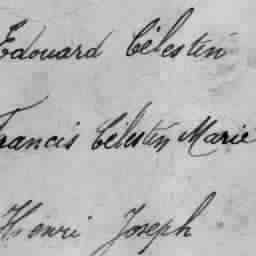 Edouard Célestin
Francis Célestin Marie
Henri Joseph